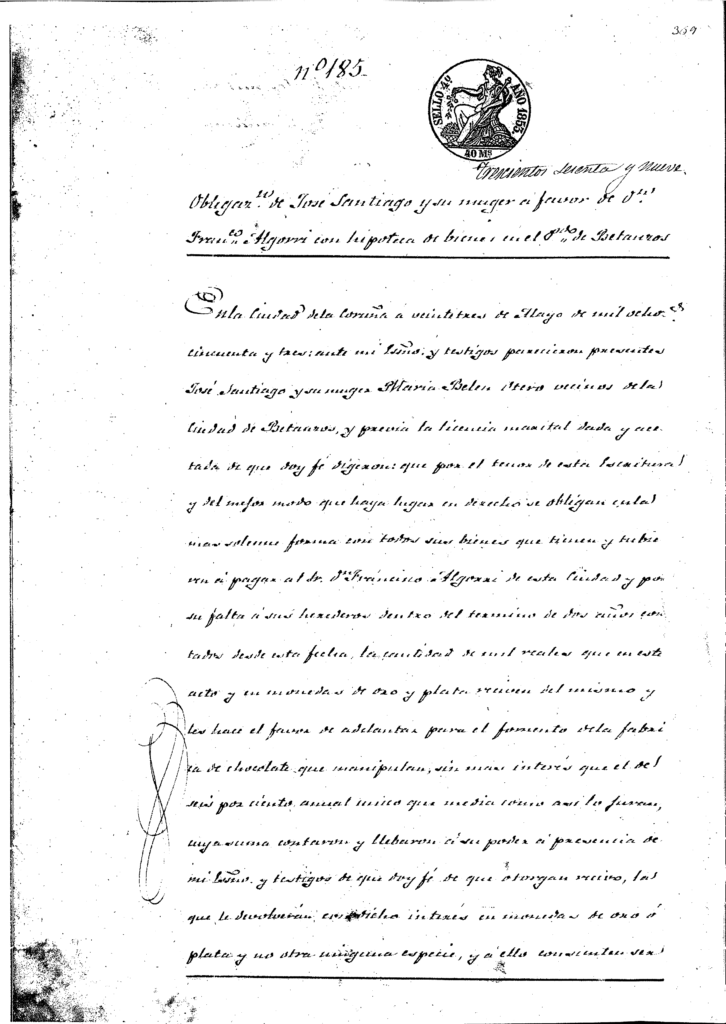 369
nº 185
SELLO 4º AÑO 1853.
40 Ms
Trescientos sesenta y nueve.
Obligazn. de José Santiago y su muger a favor de Dn.
Franco. Algorri con hipoteca de bienes en el Pdo. de Betanzos
En la Ciudad dela Coruña a veintitres de Mayo de mil ochocs.
cincuenta y tres: ante mi Esño. y testigos parecieron presentes
José Santiago y su muger Maria Belen Otero vecinos dela
Ciudad de Betanzos, y previa la licencia marital dada y acep
tada de que doy fé digeron: que por el tenor de esta Escritura
y del mejor modo que haya lugar en derecho se obligan enla
mas solemne forma con todos sus bienes que tienen y tubie
ren á pagar al Sr. Dn. Francisco Algorri de esta Ciudad y por
su falta á sus herederos dentro del termino de dos años con
tados desde esta fecha, la cantidad de mil reales que en este
acto y en monedas de oro y plata reciven del mismo y
les hace el favor de adelantar para el fomento dela fabri
ca de chocolate que manipulan, sin mas interés que el del
seis por ciento anual unico que media como asi lo juran,
cuya suma contaron y llebaron á su poder á presencia de
mi Esño. y testigos de que doy fé de que otorgan recivo, la
que le devolverán con dicho interés en monedas de oro ó
plata y no otra ninguna especie, y á ello consienten ser